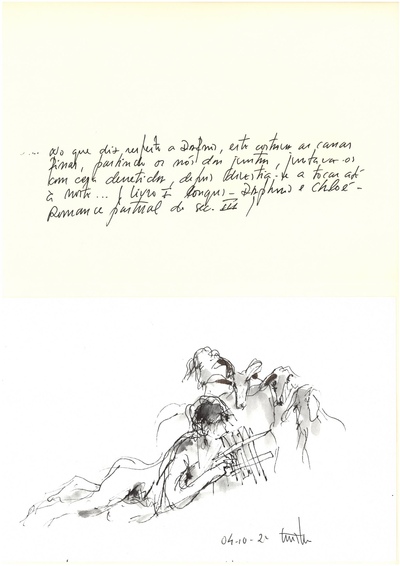 .... no que diz respeito a Dafnis, este cortava as canas
finas, partindo os nós das juntas, juntava-os
com cera derretida, depois divertia-se a tocar até
à noite... ( Livro I Longus - Daphnis e Chloé -
Romance pastoral do séc. III )
04-10-2